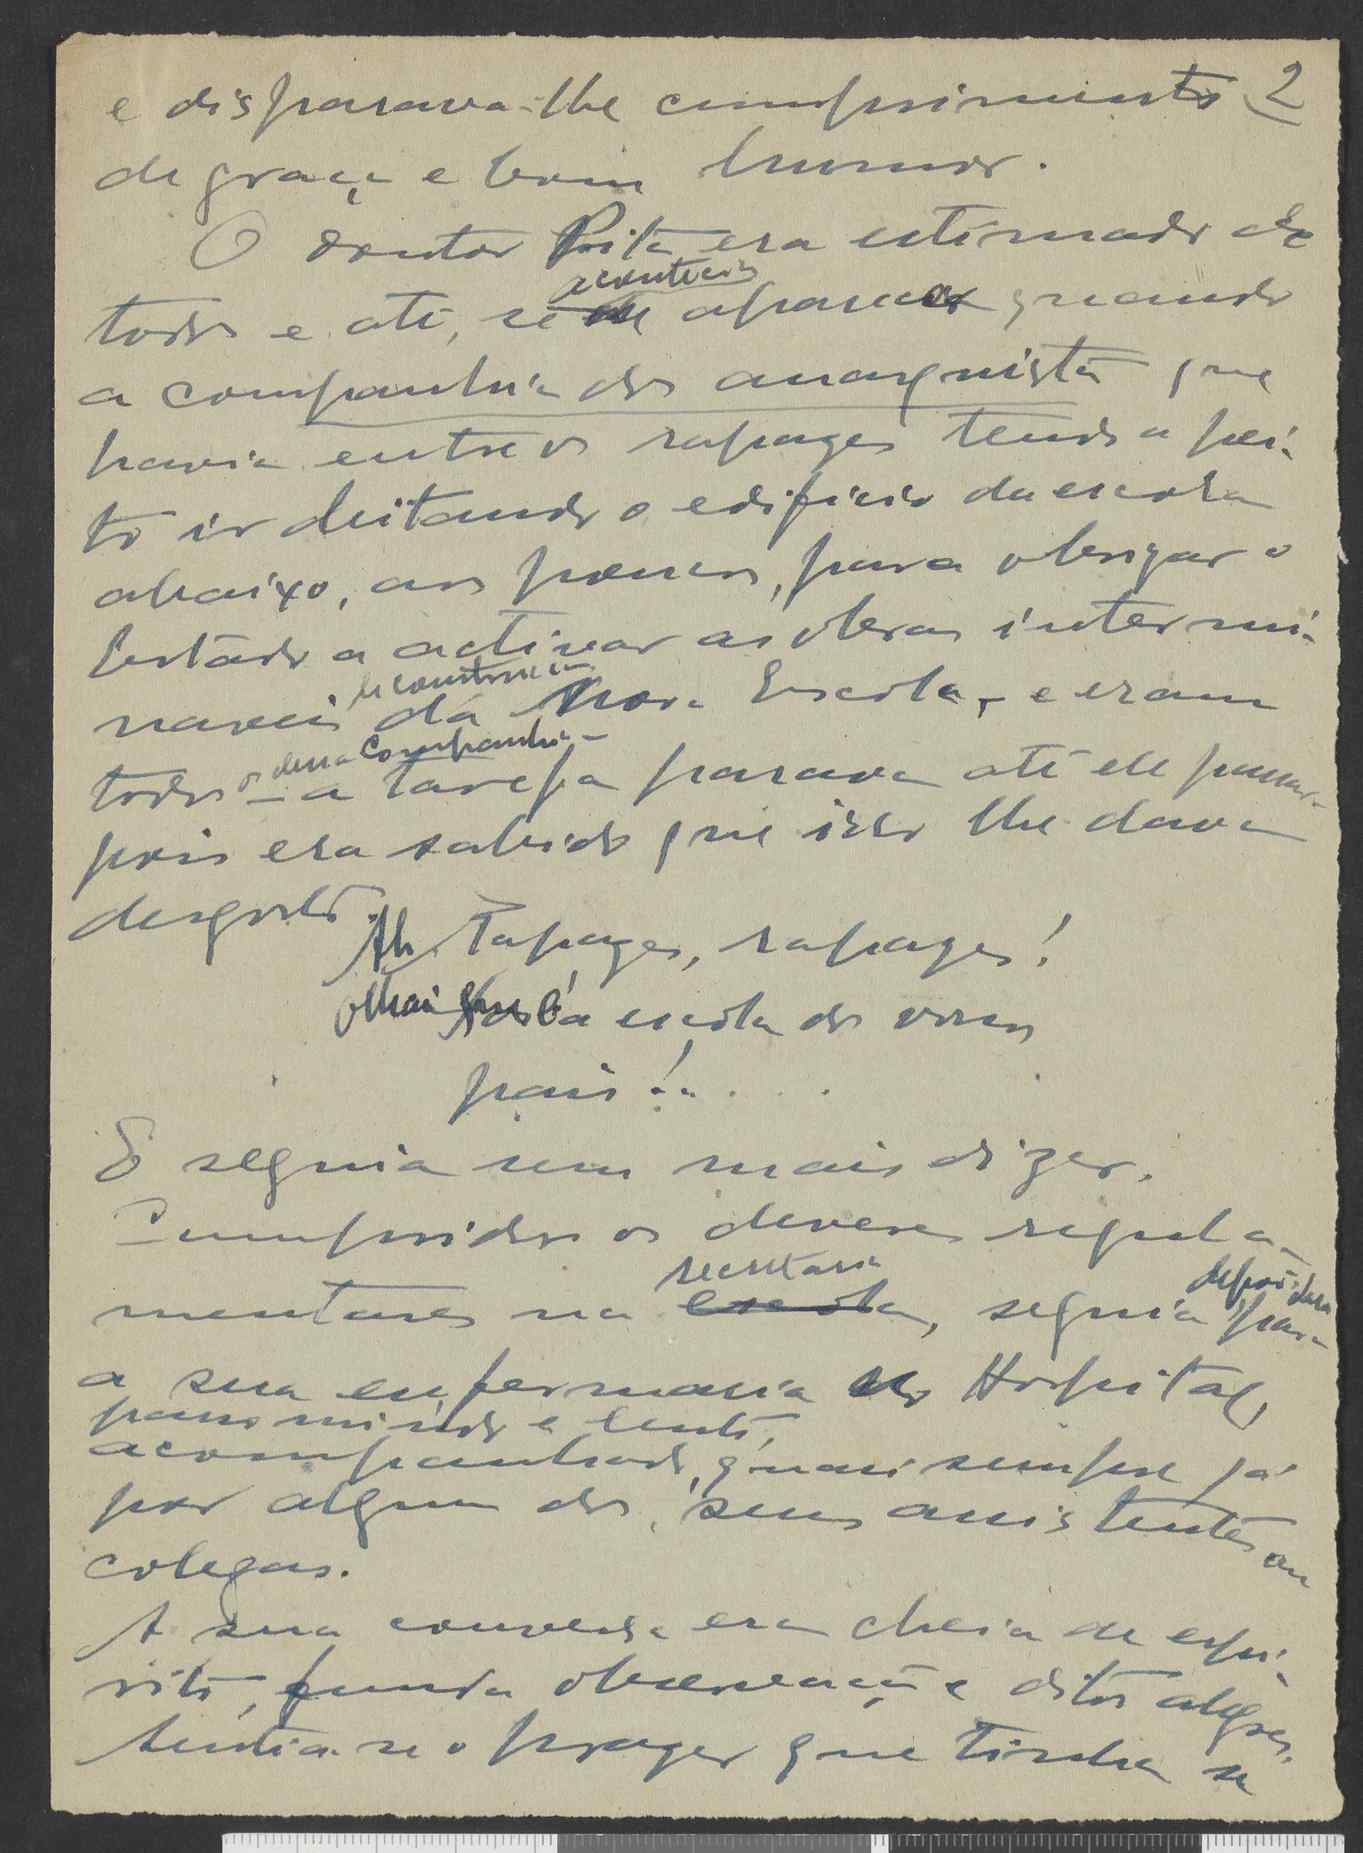 e disparava-lhe cumprimentos 2
de graça e bom humor.
O doutor era estimado de
todos e até, se acontecia aparecer quando
a companhia dos anarquistas que
havia entre os rapazes tendo a pei-
to ir deitando o edifício da escola
abaixo, aos poucos, para obrigar o
Estado a activar as obras intermi-
naveis de construção da Nova Escola, - e eram
todos os dessa Companhia - a tarefa parava até ele passar
pois era sabido que isso lhe dava
desgosto.
Ah, rapazes, rapazes!
olhai que é a escola dos vossos
pais!..
E seguia sem mais dizer.
Cumpridos os deveres regula-
mentares na secretaria, seguia depois para
a sua enfermaria no Hospital,
passo miudo e lento,
acompanhado, quasi sempre já
por algum dos seus assistentes ou
colegas.
A sua conversa era cheia de espi-
rito, funda observação e ditos alegres.
Sentia-se o prazer que tinha se